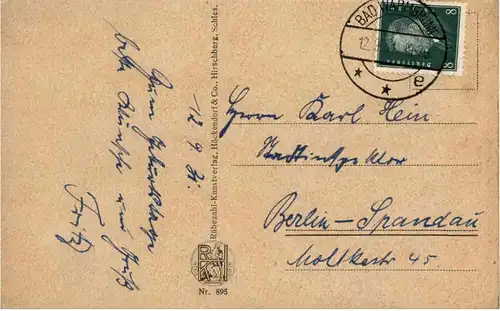 Zum Geburtstage
beste Wünsche und Gruß
Fritz
12.9.31.
Rübezahl-Kunstverlag, Höckendorf & Co., Hirschberg, Schles.
Nr. 895
BAD WARMBRUNN
12.
e
8 8
Herrn Karl Hein
Stadtinspektor
Berlin-Spandau
Moltkestr 45